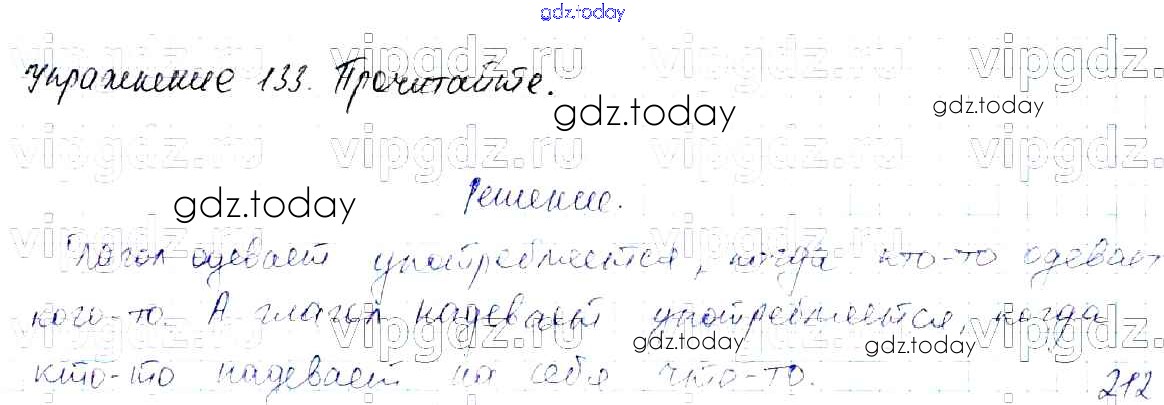 gdz.today
vipgdz.ru vipgdz.ru vipgdz.ru vipgdz.ru
Упражнение 133. Прочитайте.
gdz.today gdz.today
vipgdz.ru vipgdz.ru vipgdz.ru vipgdz.ru
gdz.today Решение.
vipgdz.ru vipgdz.ru vipgdz.ru vipgdz.ru
Глагол одевает употребляется, когда кто-то одевает
кого-то. А глагол надевает употребляется, когда
vipgdz.ru vipgdz.ru vipgdz.ru vipgdz.ru
gdz.today gdz.today
кто-то надевает на себя что-то.
212